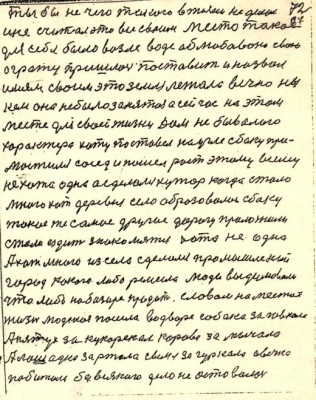 72
ты бы не чего такого в том не делал
и не считал это все своим место такое
для себя было возле воде облюбовал свою
ограту пришлох поставить и назвал
именем своим это земля лежала вечно не
кем она не было занята а сейчас на этом
месте для своей жизни дом не бывалого
характера хату поставел на угле сбоку при-
мостился сосед и пошел рост этому всему
не хата одна а сделался хутор когда стало
много хат деревня село образовалось сбоку
такое же самое другое дорогу проложили
стали ездить знакомятся хата не одна
А хат много из села сделался промышленный
город какого либо ремесла люди выдумовали
что либо на базаре продать. словом на местах
жизнь людская пошла во дворе собака загавкала
А петух закукарекал корова замычала
А лошадь заржала свинья захрюкала овечка
побитоли без всякого дело не оставалось